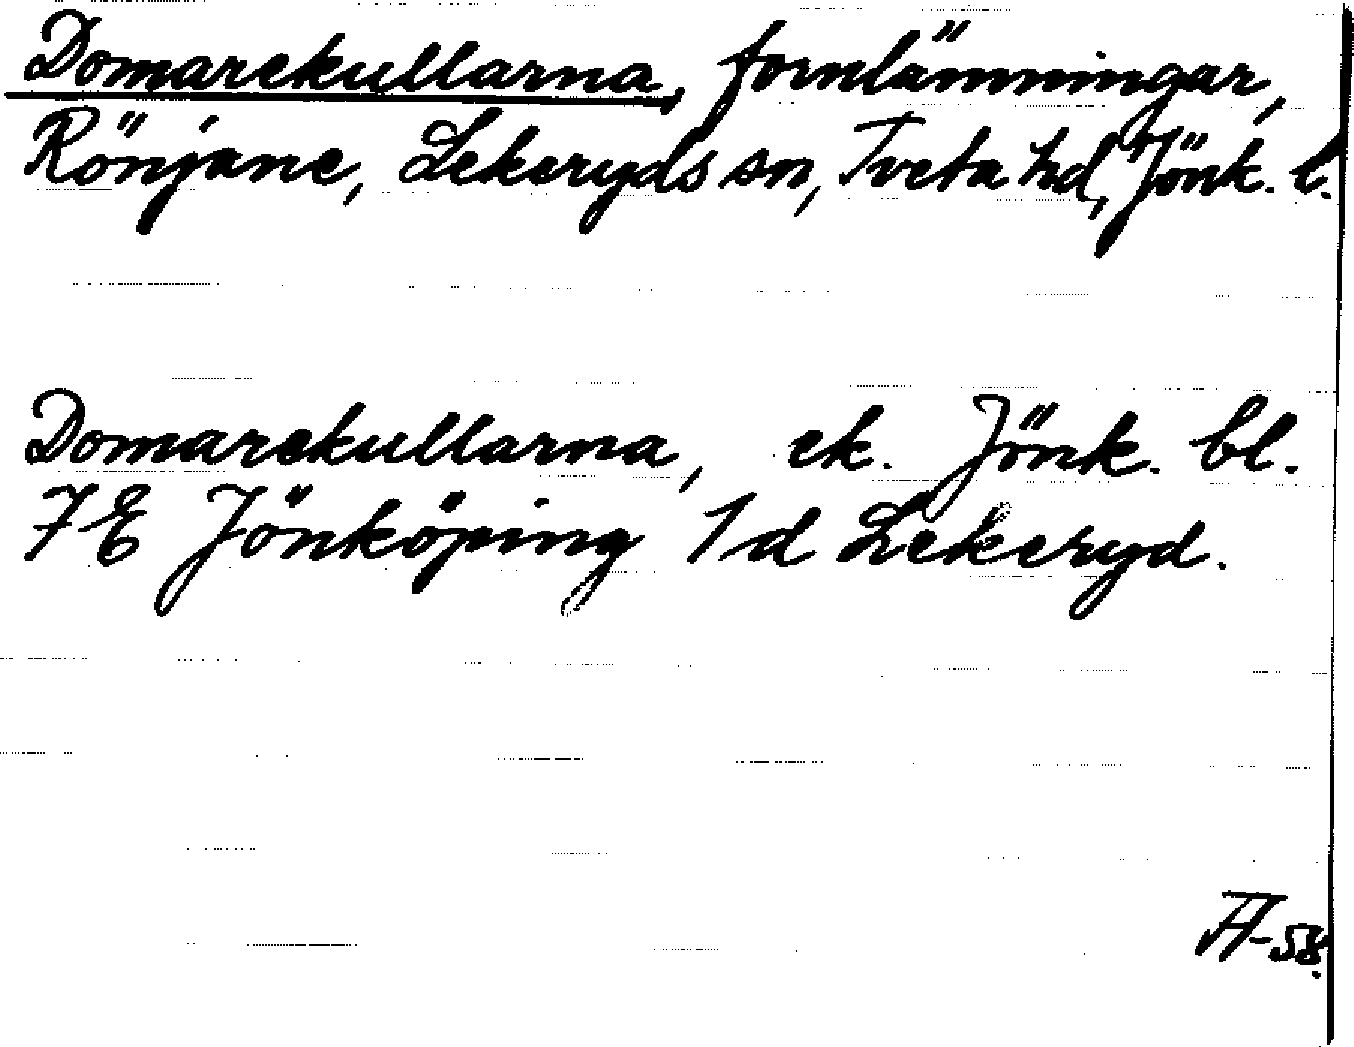 Domarekullarna, fornlämningar,
Rönjane, Lekeryds sn, Tveta hd, Jönk. l.
Domarekullarna, ek. Jönk. bl.
7E Jönköping 1d Lekeryd.